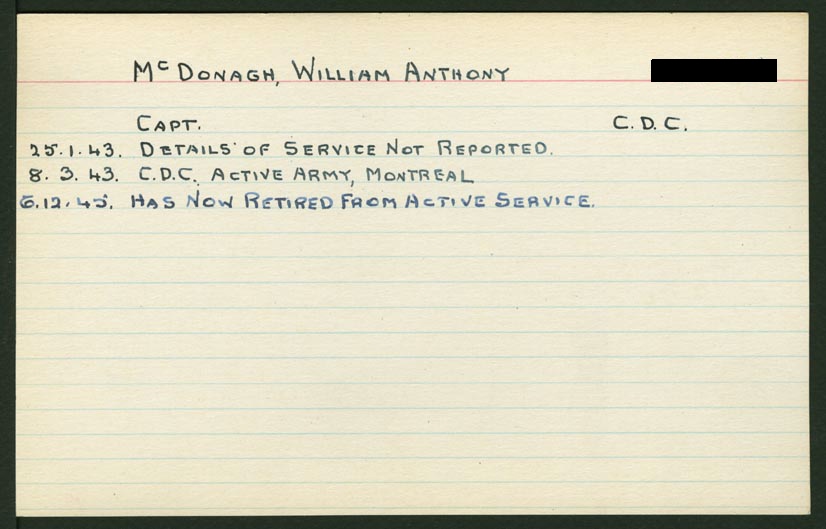 McDONAGH, WILLIAM ANTHONY
CAPT. C.D.C.
25.1.43. DETAILS OF SERVICE NOT REPORTED.
8.3.43. C.D.C. ACTIVE ARMY, MONTREAL
6.12.45. HAS NOW RETIRED FROM ACTIVE SERVICE.